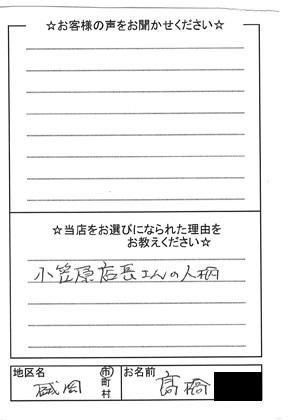 ☆お客様の声をお聞かせください☆
☆当店をお選びになられた理由を
お教えください☆
小笠原店長さんの人柄
地区名
盛岡
市
町
村
お名前
高橋